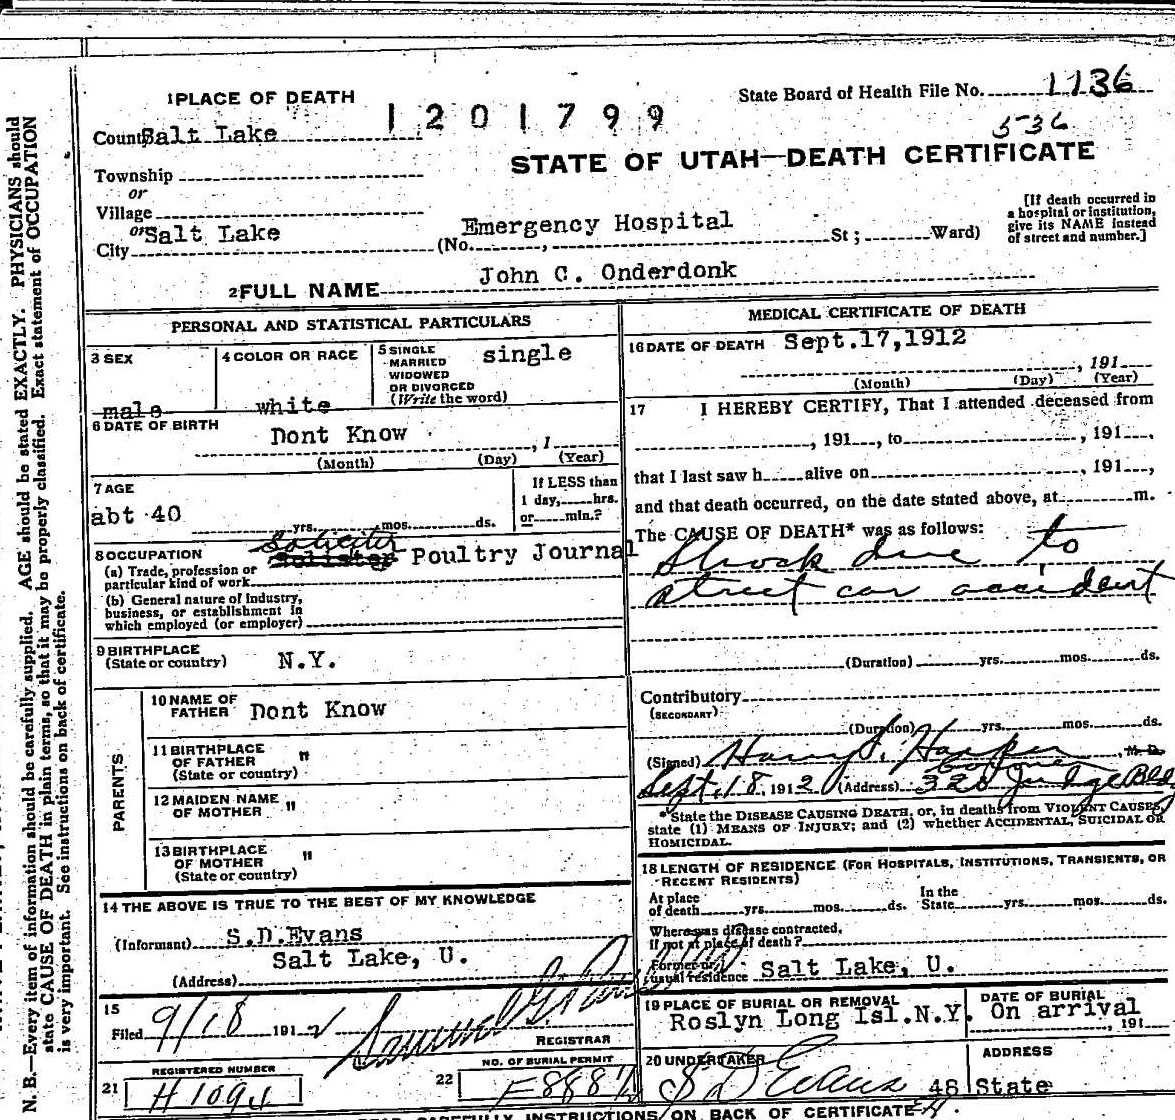 1 PLACE OF DEATH
1201799
State Board of Health File No. 1136
536
County Salt Lake
STATE OF UTAH—DEATH CERTIFICATE
Township
or
Village
or
City Salt Lake
(No. Emergency Hospital St; Ward)
[If death occurred in
a hospital or institution,
give its NAME instead
of street and number.]
2 FULL NAME John C. Onderdonk
PERSONAL AND STATISTICAL PARTICULARS
3 SEX
male
4 COLOR OR RACE
white
5 SINGLE
MARRIED
WIDOWED
OR DIVORCED
(Write the word)
single
6 DATE OF BIRTH
Dont Know , 1
(Month) (Day) (Year)
7 AGE
abt 40
yrs. mos. ds.
If LESS than
1 day, hrs.
or min.?
8 OCCUPATION
(a) Trade, profession or
particular kind of work
Soliciter
Poultry Journal
(b) General nature of industry,
business, or establishment in
which employed (or employer)
9 BIRTHPLACE
(State or country)
N.Y.
PARENTS
10 NAME OF
FATHER
Dont Know
11 BIRTHPLACE
OF FATHER
(State or country)
"
12 MAIDEN NAME
OF MOTHER
"
13 BIRTHPLACE
OF MOTHER
(State or country)
"
14 THE ABOVE IS TRUE TO THE BEST OF MY KNOWLEDGE
(Informant) S.D.Evans
Salt Lake, U.
(Address)
15
Filed 9/18 1912
REGISTRAR
REGISTERED NUMBER
21 H 1094
NO. OF BURIAL PERMIT
22
MEDICAL CERTIFICATE OF DEATH
16 DATE OF DEATH Sept.17,1912
, 191
(Month) (Day) (Year)
17 I HEREBY CERTIFY, That I attended deceased from
, 191 , to , 191 ,
that I last saw h alive on , 191 ,
and that death occurred, on the date stated above, at m.
The CAUSE OF DEATH* was as follows:
Shock due to
street car accident
(Duration) yrs. mos. ds.
Contributory
(SECONDARY)
(Duration) yrs. mos. ds.
(Signed) Harry S. Harper , M. D.
Coroner
Sept. 18. 1912 (Address) 320 Judge Bld
*State the DISEASE CAUSING DEATH, or, in deaths from VIOLENT CAUSES,
state (1) MEANS OF INJURY; and (2) whether ACCIDENTAL, SUICIDAL OR
HOMICIDAL.
18 LENGTH OF RESIDENCE (FOR HOSPITALS, INSTITUTIONS, TRANSIENTS, OR
RECENT RESIDENTS)
At place
of death yrs. mos. ds.
In the
State yrs. mos. ds.
Where was disease contracted,
if not at place of death?
Former or
usual residence Salt Lake, U.
19 PLACE OF BURIAL OR REMOVAL
Roslyn Long Isl.N.Y.
DATE OF BURIAL
On arrival
, 191
20 UNDERTAKER
S D Evans
ADDRESS
48 State
N. B.—Every item of information should be carefully supplied. AGE should be stated EXACTLY. PHYSICIANS should
state CAUSE OF DEATH in plain terms, so that it may be properly classified. Exact statement of OCCUPATION
is very important. See instructions on back of certificate.
READ CAREFULLY INSTRUCTIONS ON BACK OF CERTIFICATE